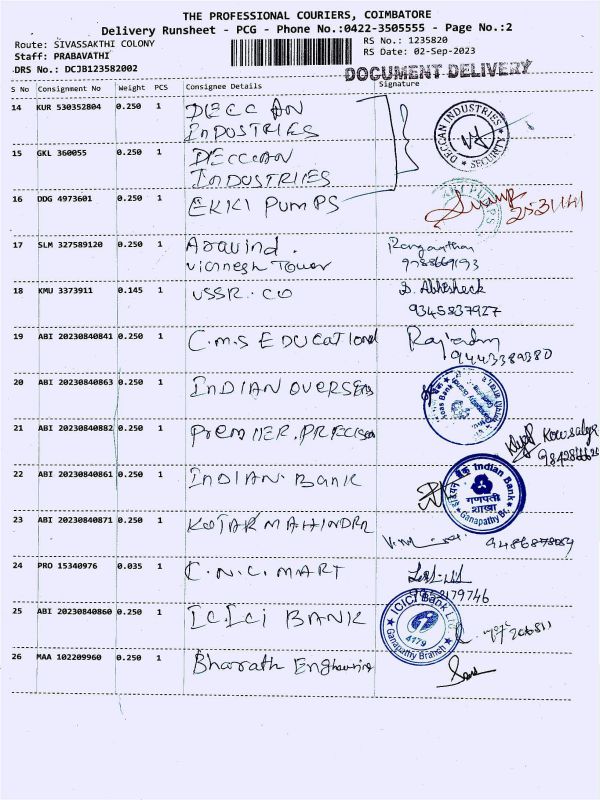 THE PROFESSIONAL COURIERS, COIMBATORE
Delivery Runsheet - PCG - Phone No.:0422-3505555 - Page No.:2
Route: SIVASSAKTHI COLONY
RS No.: 1235820
Staff: PRABAVATHI
RS Date: 02-Sep-2023
DRS No.: DCJB123582002
DOCUMENT DELIVERY
S No Consignment No Weight PCS Consignee Details Signature
14 KUR 530352804 0.250 1 DECCAN
INDUSTRIES
DECCAN INDUSTRIES
SECURITY
15 GKL 360055 0.250 1 DECCAN
INDUSTRIES
16 DDG 4973601 0.250 1 EKKI PUMPS
2531141
17 SLM 327589120 0.250 1 Aravind.
Vignesh Tower
18 KMU 3373911 0.145 1 USSR. CO D. Abhisheck
9345837927
19 ABI 20230840841 0.250 1 C.M.S EDUCational
9443389380
20 ABI 20230840863 0.250 1 INDIAN OVERSEAS
21 ABI 20230840882 0.250 1 PREMIER. PRECISION
Kowsalya
22 ABI 20230840861 0.250 1 INDIAN. Bank
Indian Bank
गणपती
शाखा
Ganapathy Br.
23 ABI 20230840871 0.250 1 KOTAK MAHINDRA
24 PRO 15340976 0.035 1 C.N.C. MART
25 ABI 20230840860 0.250 1 ICICI BANK
ICICI Bank Ltd.
4179
Ganapathy Branch
26 MAA 102209960 0.250 1 Bharath Engineering